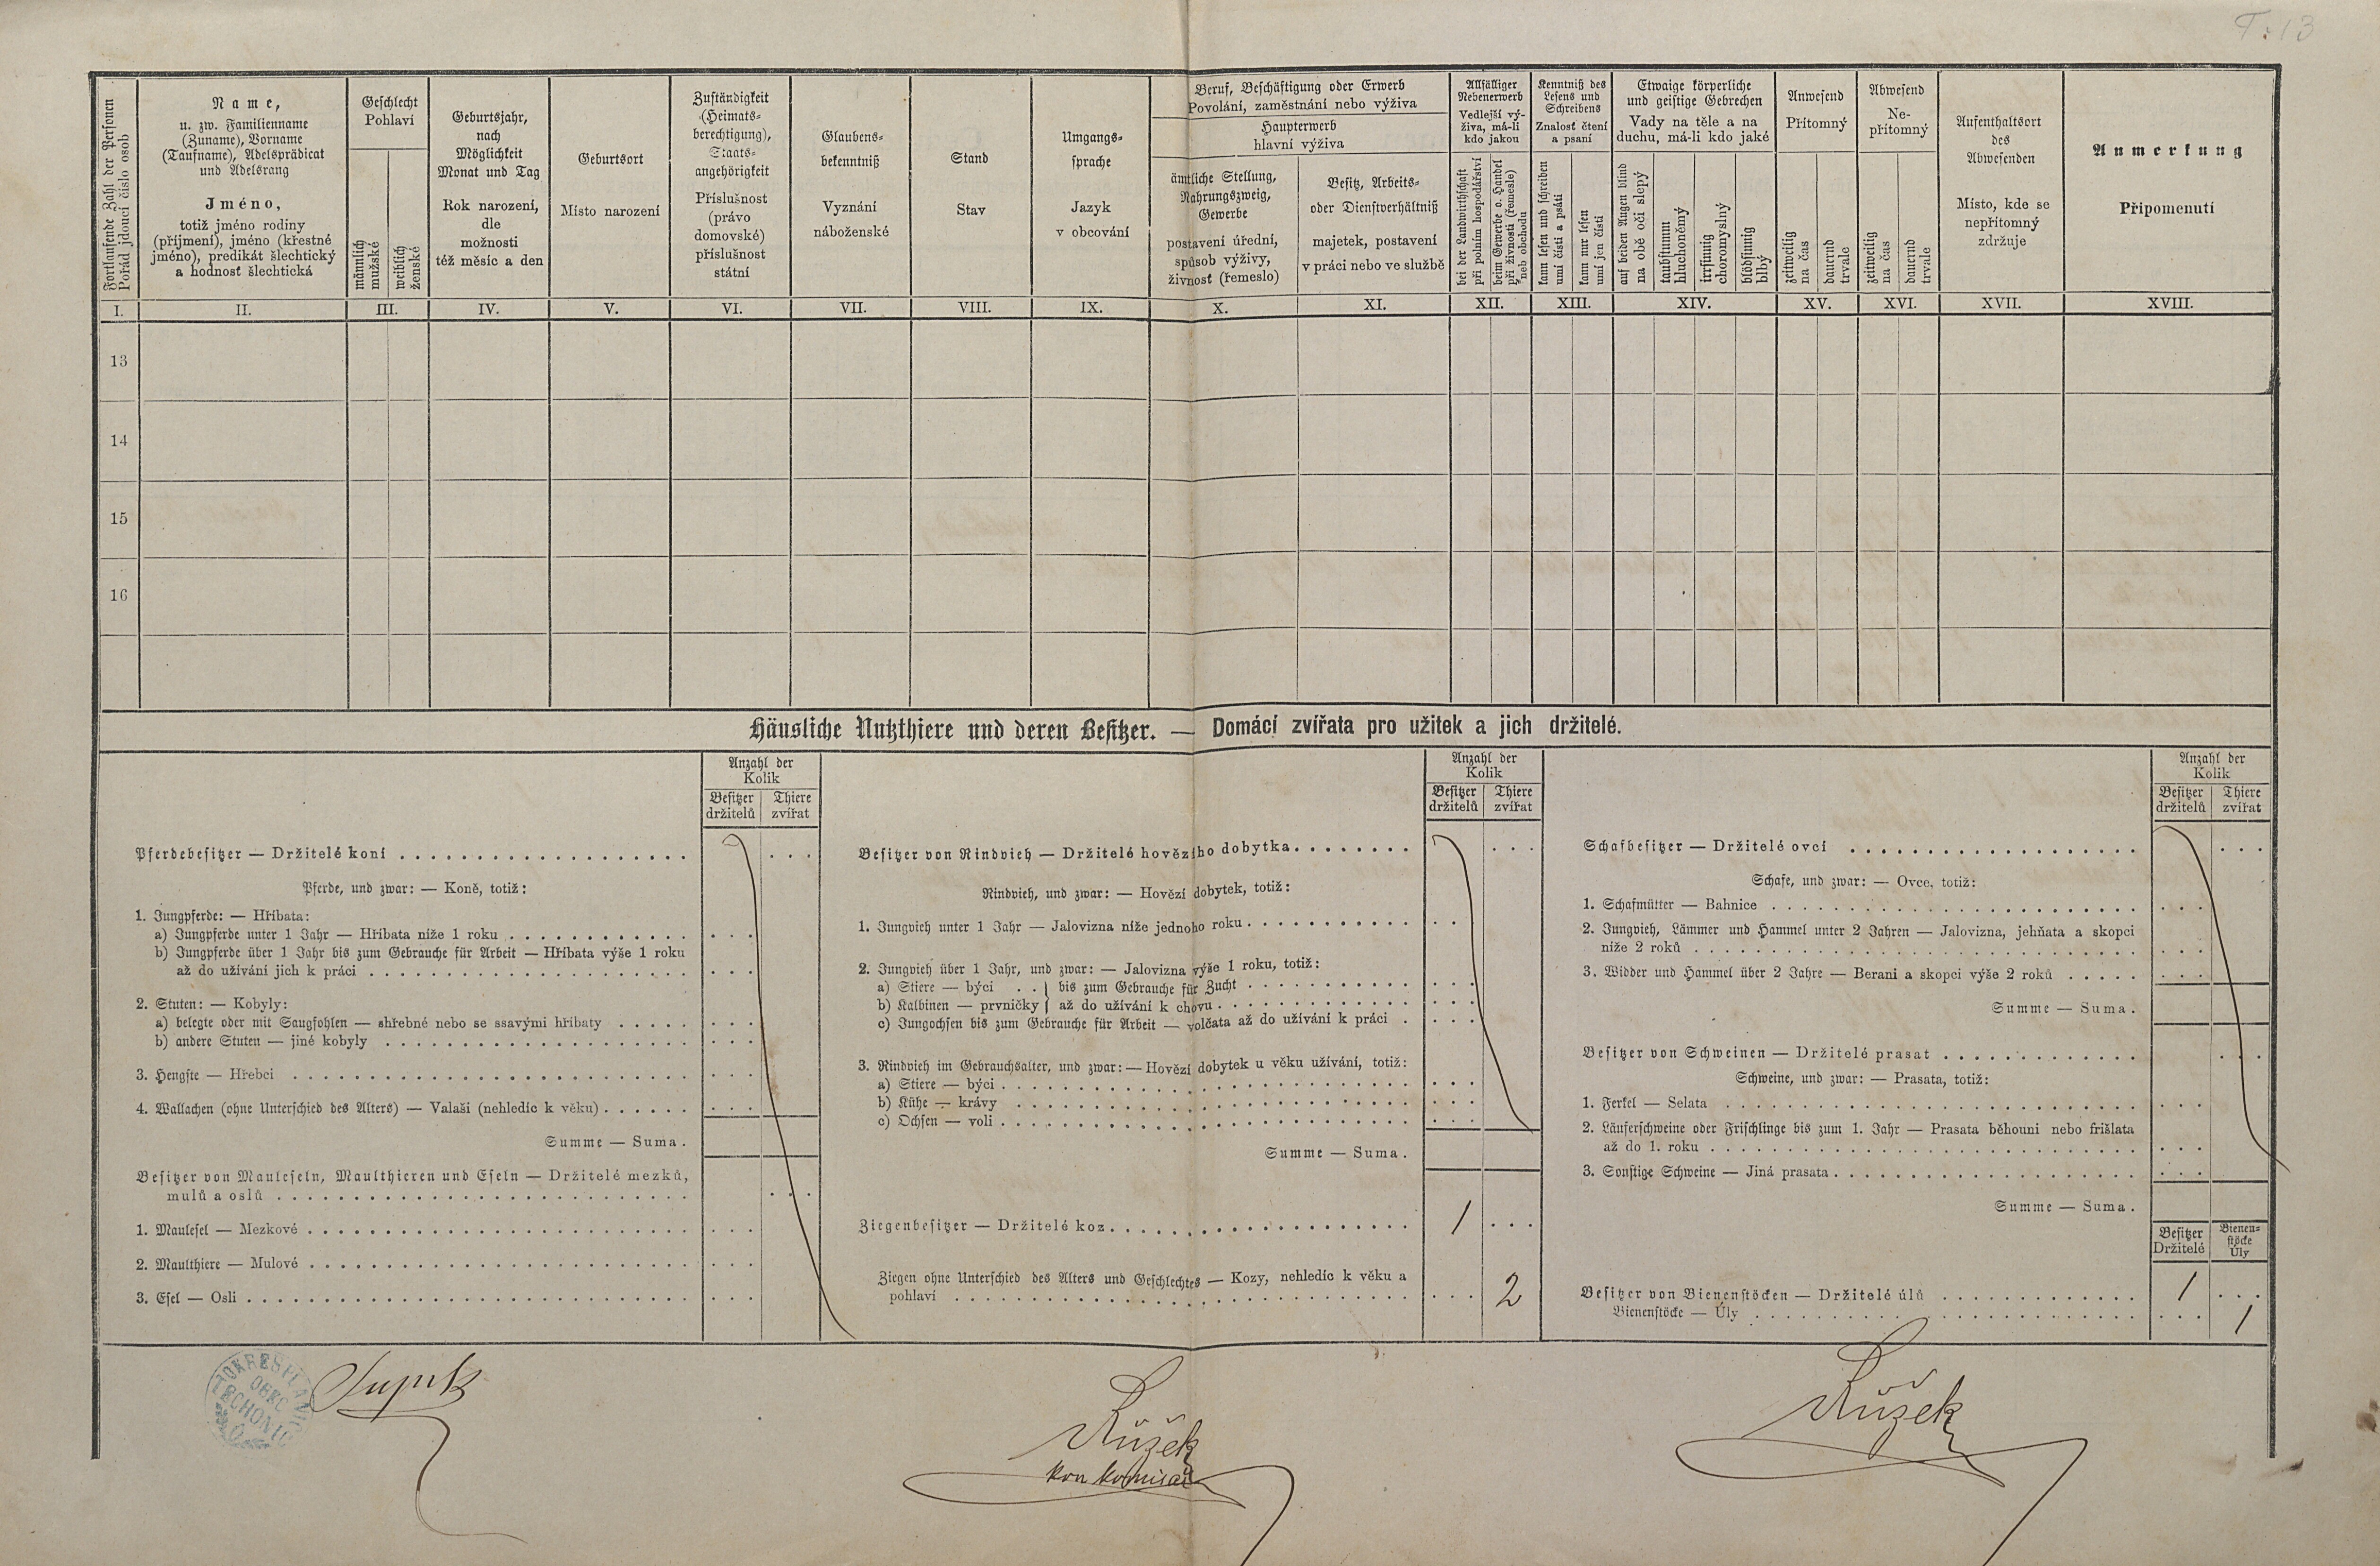 T: 13
Fortlaufende Zahl der Personen
Pořád jdoucí číslo osob
Name,
u. zw. Familienname
(Zuname), Vorname
(Taufname), Adelsprädicat
und Adelsrang
Jméno,
totiž jméno rodiny
(příjmení), jméno (křestné
jméno), predikát šlechtický
a hodnosť šlechtická
Geschlecht
Pohlaví
männlich
mužské
weiblich
ženské
Geburtsjahr,
nach
Möglichkeit
Monat und Tag
Rok narození,
dle
možnosti
též měsíc a den
Geburtsort
Místo narození
Zuständigkeit
(Heimats-
berechtigung),
Staats-
angehörigkeit
Příslušnost
(právo
domovské)
příslušnost
státní
Glaubens-
bekenntniß
Vyznání
náboženské
Stand
Stav
Umgangs-
sprache
Jazyk
v obcování
Beruf, Beschäftigung oder Erwerb
Povolání, zaměstnání nebo výživa
Haupterwerb
hlavní výživa
ämtliche Stellung,
Nahrungszweig,
Gewerbe
postavení úřední,
spůsob výživy,
živnosť (řemeslo)
Besitz, Arbeits-
oder Dienstverhältniß
majetek, postavení
v práci nebo ve službě
Allfälliger
Nebenerwerb
Vedlejší vý-
živa, má-li
kdo jakou
bei der Landwirthschaft
při polním hospodářství
beim Gewerbe o. Handel
při živnosti (řemesle)
neb obchodu
Kenntniß des
Lesens und
Schreibens
Znalosť čtení
a psaní
kann lesen und schreiben
umí čísti a psáti
kann nur lesen
umí jen čísti
Etwaige körperliche
und geistige Gebrechen
Vady na těle a na
duchu, má-li kdo jaké
auf beiden Augen blind
na obě oči slepý
taubstumm
hluchoněmý
irrsinnig
choromyslný
blödsinnig
blbý
Anwesend
Přítomný
zeitweilig
na čas
dauernd
trvale
Abwesend
Ne-
přítomný
zeitweilig
na čas
dauernd
trvale
Aufenthaltsort
des
Abwesenden
Místo, kde se
nepřítomný
zdržuje
Anmerkung
Připomenutí
I. II. III. IV. V. VI. VII. VIII. IX. X. XI. XII. XIII. XIV. XV. XVI. XVII. XVIII.
13
14
15
16
Häusliche Nutzthiere und deren Besitzer. — Domácí zvířata pro užitek a jich držitelé.
Anzahl der
Kolik
Besitzer
držitelů
Thiere
zvířat
Pferdebesitzer — Držitelé koní
Pferde, und zwar: — Koně, totiž:
1. Jungpferde: — Hříbata:
a) Jungpferde unter 1 Jahr — Hříbata níže 1 roku
b) Jungpferde über 1 Jahr bis zum Gebrauche für Arbeit — Hříbata výše 1 roku
až do užívání jich k práci
2. Stuten: — Kobyly:
a) belegte oder mit Saugfohlen — shřebné nebo se ssavými hříbaty
b) andere Stuten — jiné kobyly
3. Hengste — Hřebci
4. Wallachen (ohne Unterschied des Alters) — Valaši (nehledíc k věku)
Summe — Suma.
Besitzer von Mauleseln, Maulthieren und Eseln — Držitelé mezků,
mulů a oslů
1. Maulesel — Mezkové
2. Maulthiere — Mulové
3. Esel — Osli
Anzahl der
Kolik
Besitzer
držitelů
Thiere
zvířat
Besitzer von Rindvieh — Držitelé hovězího dobytka
Rindvieh, und zwar: — Hovězí dobytek, totiž:
1. Jungvieh unter 1 Jahr — Jalovizna níže jednoho roku
2. Jungvieh über 1 Jahr, und zwar: — Jalovizna výše 1 roku, totiž:
a) Stiere — býci . . } bis zum Gebrauche für Zucht
b) Kalbinen — prvničky } až do užívání k chovu
c) Jungochsen bis zum Gebrauche für Arbeit — volčata až do užívání k práci
3. Rindvieh im Gebrauchsalter, und zwar: — Hovězí dobytek u věku užívání, totiž:
a) Stiere — býci
b) Kühe — krávy
c) Ochsen — voli
Summe — Suma.
Ziegenbesitzer — Držitelé koz 1
Ziegen ohne Unterschied des Alters und Geschlechtes — Kozy, nehledíc k věku a
pohlaví 2
Anzahl der
Kolik
Besitzer
držitelů
Thiere
zvířat
Schafbesitzer — Držitelé ovcí
Schafe, und zwar: — Ovce, totiž:
1. Schafmütter — Bahnice
2. Jungvieh, Lämmer und Hammel unter 2 Jahren — Jalovizna, jehňata a skopci
níže 2 roků
3. Widder und Hammel über 2 Jahre — Berani a skopci výše 2 roků
Summe — Suma.
Besitzer von Schweinen — Držitelé prasat
Schweine, und zwar: — Prasata, totiž:
1. Ferkel — Selata
2. Läuferschweine oder Frischlinge bis zum 1. Jahr — Prasata běhouni nebo frišlata
až do 1. roku
3. Sonstige Schweine — Jiná prasata
Summe — Suma.
Besitzer
Držitelé
Bienen-
stöcke
Úly
Besitzer von Bienenstöcken — Držitelé úlů 1
Bienenstöcke — Úly 1
OBEC
Růžek
kon komisař
Růžek